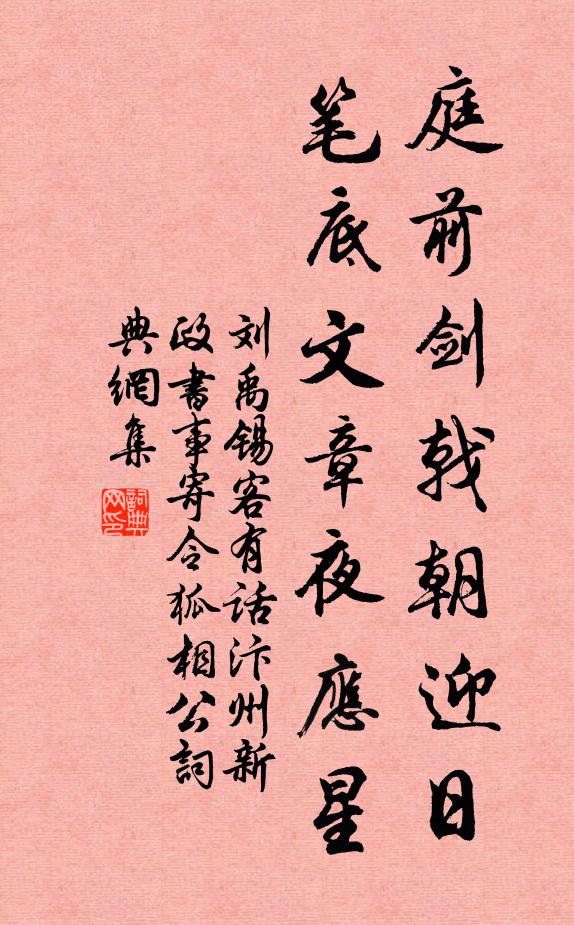 庭前剑戟朝迎日
笔底文章夜應星
刘禹锡客有话汴州新
政書事寄令狐相公詞
典網集
詞典
网印